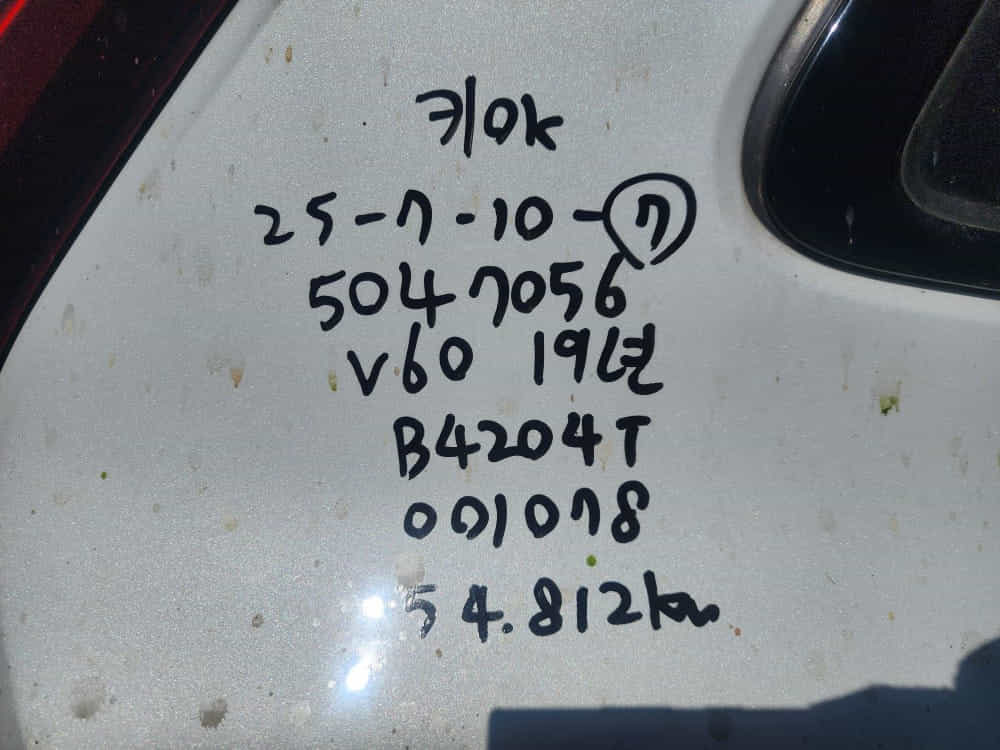 키ok
25-7-10-⑦
5047056
V60 19년
B4204T
001078
54.812km